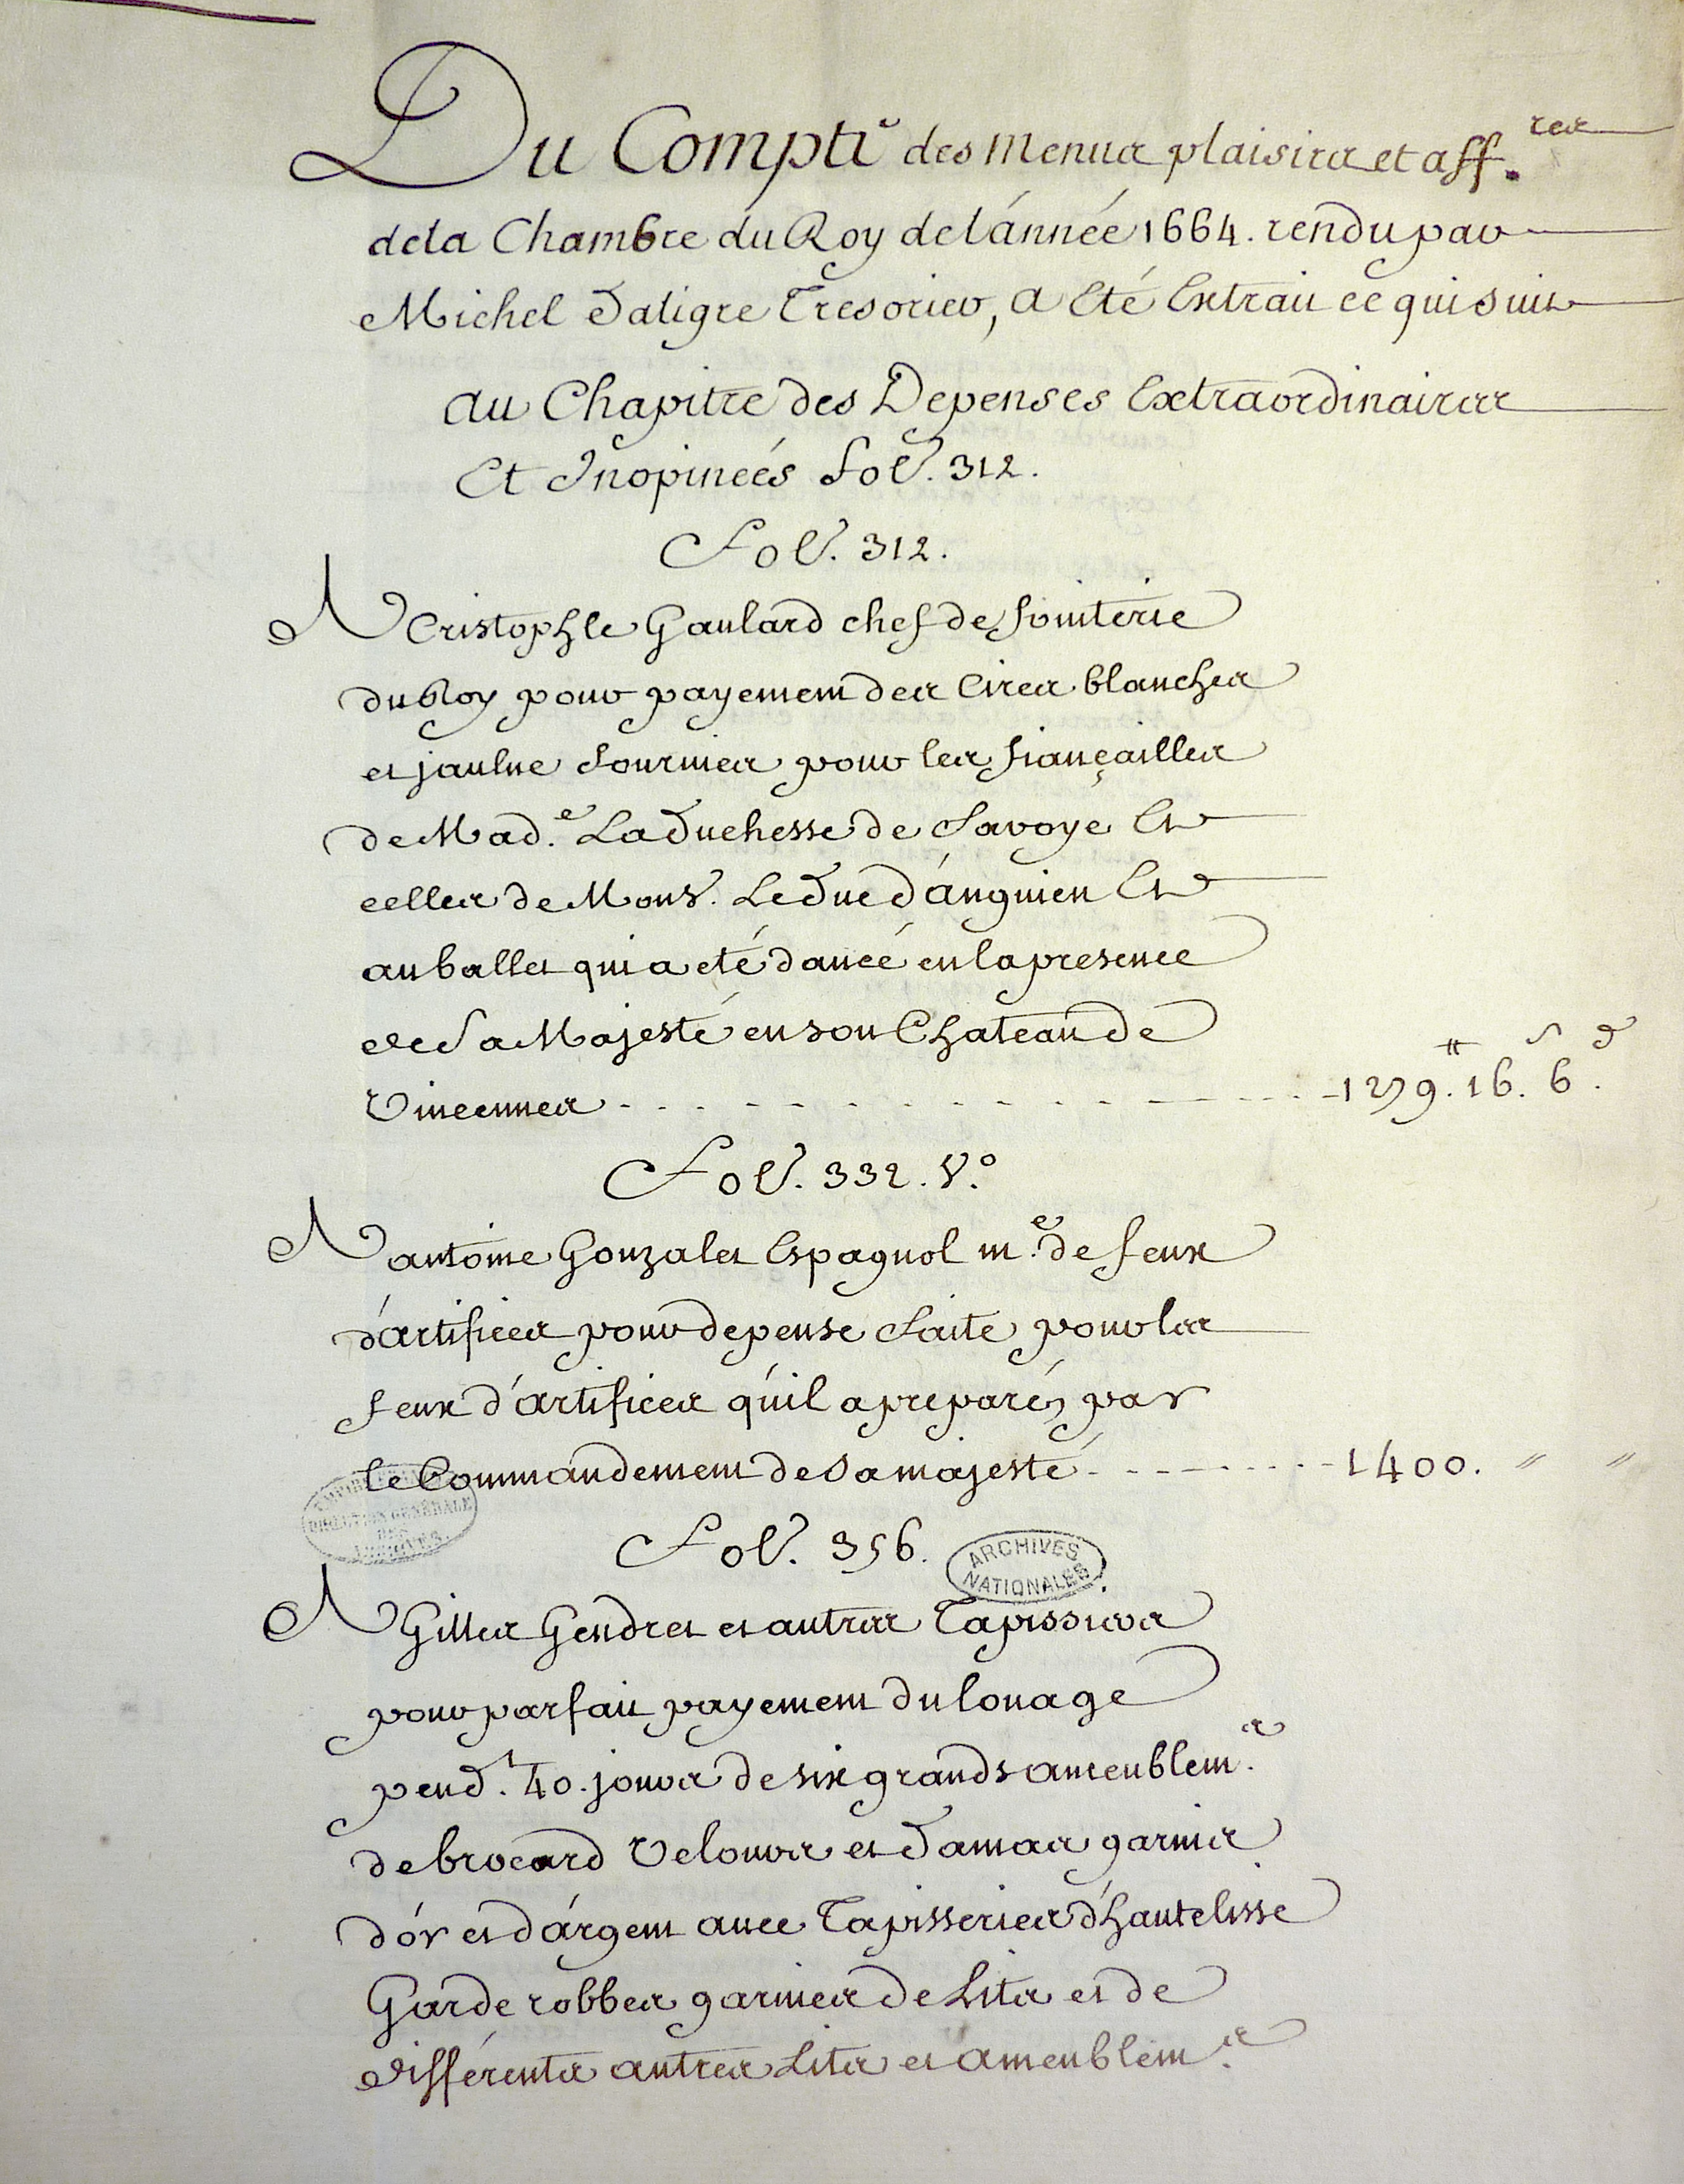 Du Compte des menus plaisirs et aff.res
de la Chambre du Roy de l'année 1664. rendu par
Michel Daligre Tresorier, a Eté Extrait ce qui suit
au Chapitre des Depenses Extraordinaires
Et Inopineés fol. 312.
Fol. 312.
A Cristophle Gaulard chef de fruiterie
du Roy pour payement des Cires blanches
et jaulne fournies pour les fiançailles
de Mad.e La Duchesse de Savoye Et
celles de Mons.r Le Duc d'anguien Et
au ballet qui a eté dancé en la presence
de Sa Majesté en son Chateau de
Vincennes - - - - - 1279.tt 16.s 6.d
Fol. 332. V.o
A antoine Gonzalet Espagnol m.e de feux
d'artifices pour depense faite pour les
feux d'artifices qu'il a preparés par
le Commandement de Sa majesté - - - - - 1400. " "
EMPIRE FRANÇAIS
DIRECTION GÉNÉRALE
DES
ARCHIVES.
Fol. 356.
ARCHIVES
NATIONALES
A Gilles Gendret et autres Tapissiers
pour parfait payement du louage
pend.t 40. jours de six grands ameublem.s
de brocard Velours et Damas garnis
d'or et d'argent avec Tapisseries d'hautelisse
Garderobbes garnies de Lits et de
différents autres Lits et ameublem.s